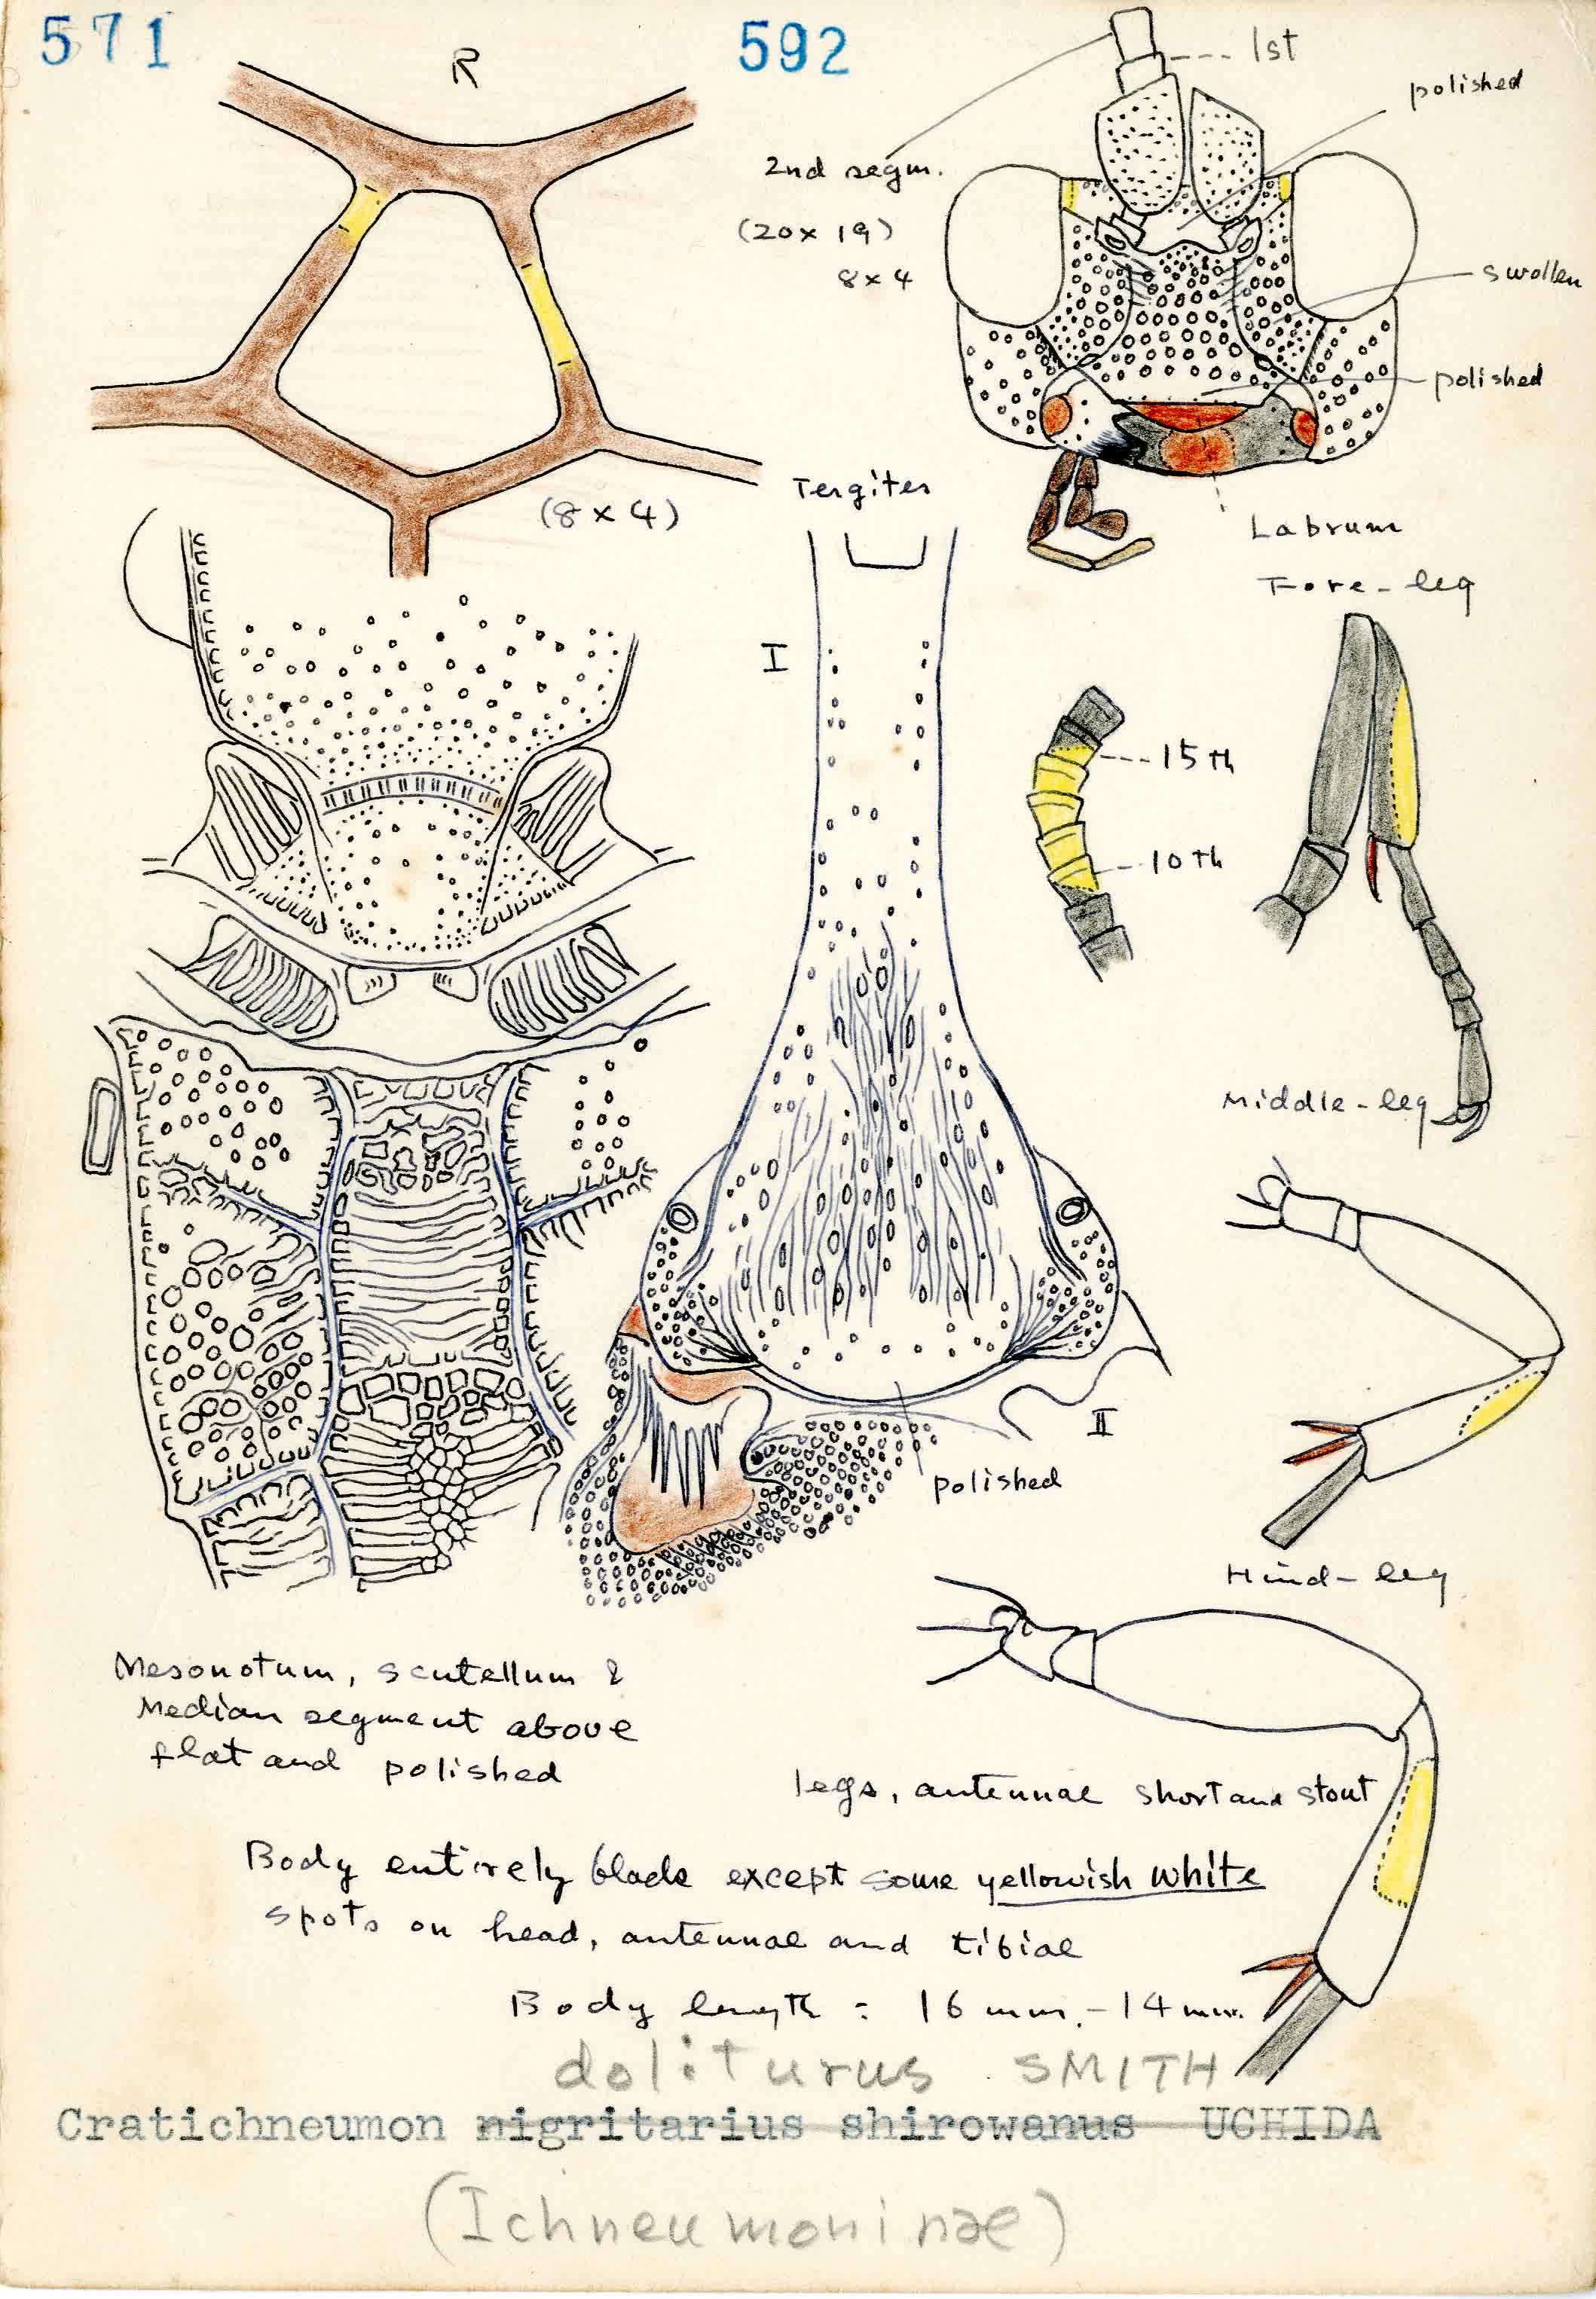 571
592
R
1st
polished
2nd segm.
(20 x 19)
8 x 4
swollen
polished
(8 x 4)
Tergites
Labrum
Fore-leg
I
15th
10th
Middle-leg
II
polished
Hind-leg
Mesonotum, scutellum &
Median segment above
flat and polished
legs, antennae short and stout
Body entirely black except some yellowish white
spots on head, antennae and tibiae
Body length : 16 mm.-14 mm.
doliturus SMITH
Cratichneumon nigritarius shirowanus UCHIDA
(Ichneumoninae)